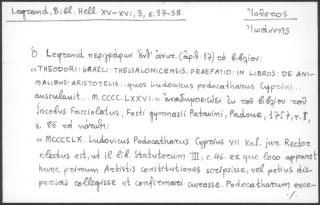 Legrand, Bibl. Hell. XV-XVI, 3, σ. 37-38
Ἰωάννης
Ὁ Legrand περιγράφων ὑπ' (ἀριθ 17) τὸ βιβλίον:
"THEODORI: GRAECI: THESSALONICENSIS: PRAEFATIO: IN LIBROS: DE ANI-
MALIBUS: ARISTOTELIS... quos Ludovicus podocatharus Cyprius...
auscultauit... M.CCCC.LXXVI." ἀναδημοσιεύει ἐκ τοῦ βιβλίου τοῦ
Jacobus Facciolatus, Fasti gymnasii Patavini, Padoue, 1757, τ. I,
σ. 86 τὰ κάτωθι:
"MCCCCLX. Ludovicus Podocatharus Cyprius VII Kal. jun. Rector
electus est, ut il lib. Statutorum III, c. 46. ex quo loco apparet
hunc primum Artistis constitutiones scripsisse, vel potius dis-
persas collegisse et confirmari curasse. Podocatharum exce-
./.